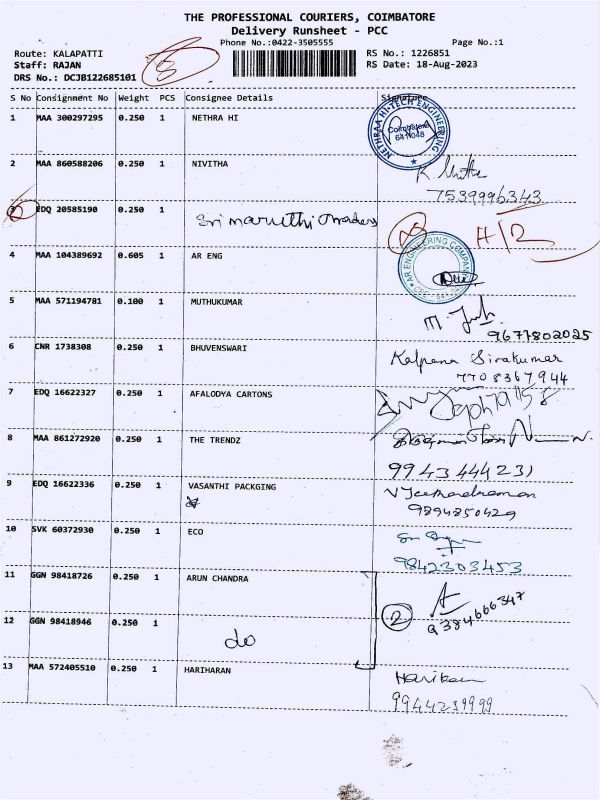 THE PROFESSIONAL COURIERS, COIMBATORE
Delivery Runsheet - PCC
Phone No.:0422-3505555 Page No.:1
Route: KALAPATTI RS No.: 1226851
Staff: RAJAN RS Date: 18-Aug-2023
DRS No.: DCJB122685101
S No Consignment No Weight PCS Consignee Details Signature
1 MAA 300297295 0.250 1 NETHRA HI
NETHRAA HI-TECH ENGINEERING
Coimbatore
641 048
2 MAA 860588206 0.250 1 NIVITHA
7539996343
3 EDQ 20585190 0.250 1 Sri maruthi traders
H/R
4 MAA 104389692 0.605 1 AR ENG
AR ENGINEERING COMPANY
5 MAA 571194781 0.100 1 MUTHUKUMAR
9677802025
6 CNR 1738308 0.250 1 BHUVENSWARI
Kalpana Sivakumar
7708367944
7 EDQ 16622327 0.250 1 AFALODYA CARTONS
8 MAA 861272920 0.250 1 THE TRENDZ
9 EDQ 16622336 0.250 1 VASANTHI PACKGING
9894350429
10 SVK 60372930 0.250 1 ECO
9842303453
11 GGN 98418726 0.250 1 ARUN CHANDRA
2
9384666347
12 GGN 98418946 0.250 1 do
13 MAA 572405510 0.250 1 HARIHARAN
9944239999